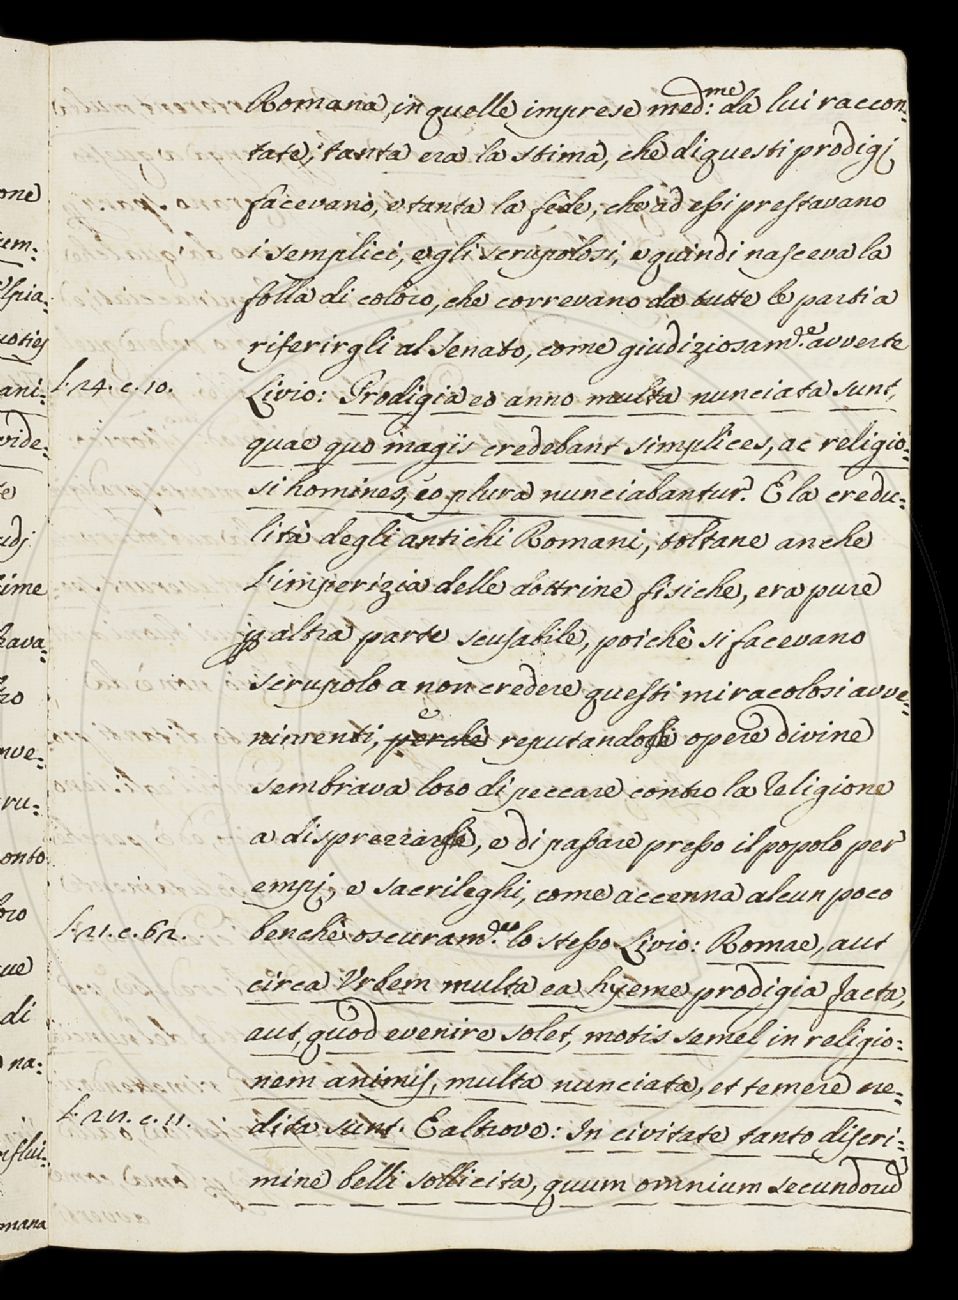 Romana, in quelle imprese med:me da lui raccon:
tate; tanta era la stima, che di questi prodigj
facevano, e tanta la fede, che ad essi prestavano
i semplici, e gli scrupolosi, e quindi nasceva la
folla di coloro, che correvano da tutte le parti a
riferirgli al Senato, come giudiziosam.te avverte
L. 24. c. 10.
Livio: Prodigia eo anno multa nunciata sunt,
quae quo magis credebant simplices, ac religio:
si homines, eo plura nunciabantur. E la credu:
lità degli antichi Romani, toltane anche
l'imperizia delle dottrine fisiche, era pure
altra parte scusabile, poichè si facevano
scrupolo a non credere questi miracolosi avve:
nimenti, perchè e reputandosi opere divine
sembrava loro di peccare contro la Religione
a disprezzarsi, e di passare presso il popolo per
empj, e sacrileghi, come accenna alcun poco
L. 21. c. 62.
benchè oscuram.te lo stesso Livio: Romae, aut
circa Urbem multa ea hyeme prodigia facta,
aut, quod evenire solet, motis semel in religio:
nem animis, multa nunciata, et temere cre:
L. 27. c. 11.
dita sunt. E altrove: In civitate tanto discri:
mine belli sollicita, quum omnium secundorum
one
um:
uoties
ani:
vide:
udj.
time
nve:
ru:
onto
di
na:
mana